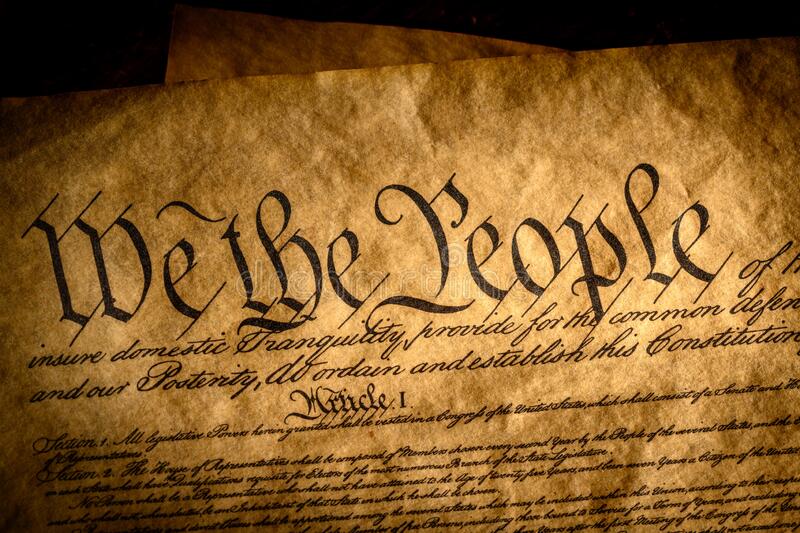 We the People of th
insure domestic Tranquility, provide for the common defen
and our Posterity, do ordain and establish this Constitution
Article. I.
Section 1. All legislative Powers herein granted shall be vested in a Congress of the United States, which shall consist of a Senate and Ho
of Representatives.
Section 2. The House of Representatives shall be composed of Members chosen every second Year by the People of the several States, and the
in each State shall have Qualifications requisite for Electors of the most numerous Branch of the State Legislature.
No Person shall be a Representative who shall not have attained to the Age of twenty five Years, and been seven Years a Citizen of the United
and who shall not, when elected, be an Inhabitant of that State in which he shall be chosen.
and direct Taxes shall be apportioned among the several States which may be included within this Union, according to their respe
including those bound to Service for a Term of Years, and excluding
Years after the first Meeting of the Congress of the
dreamstime